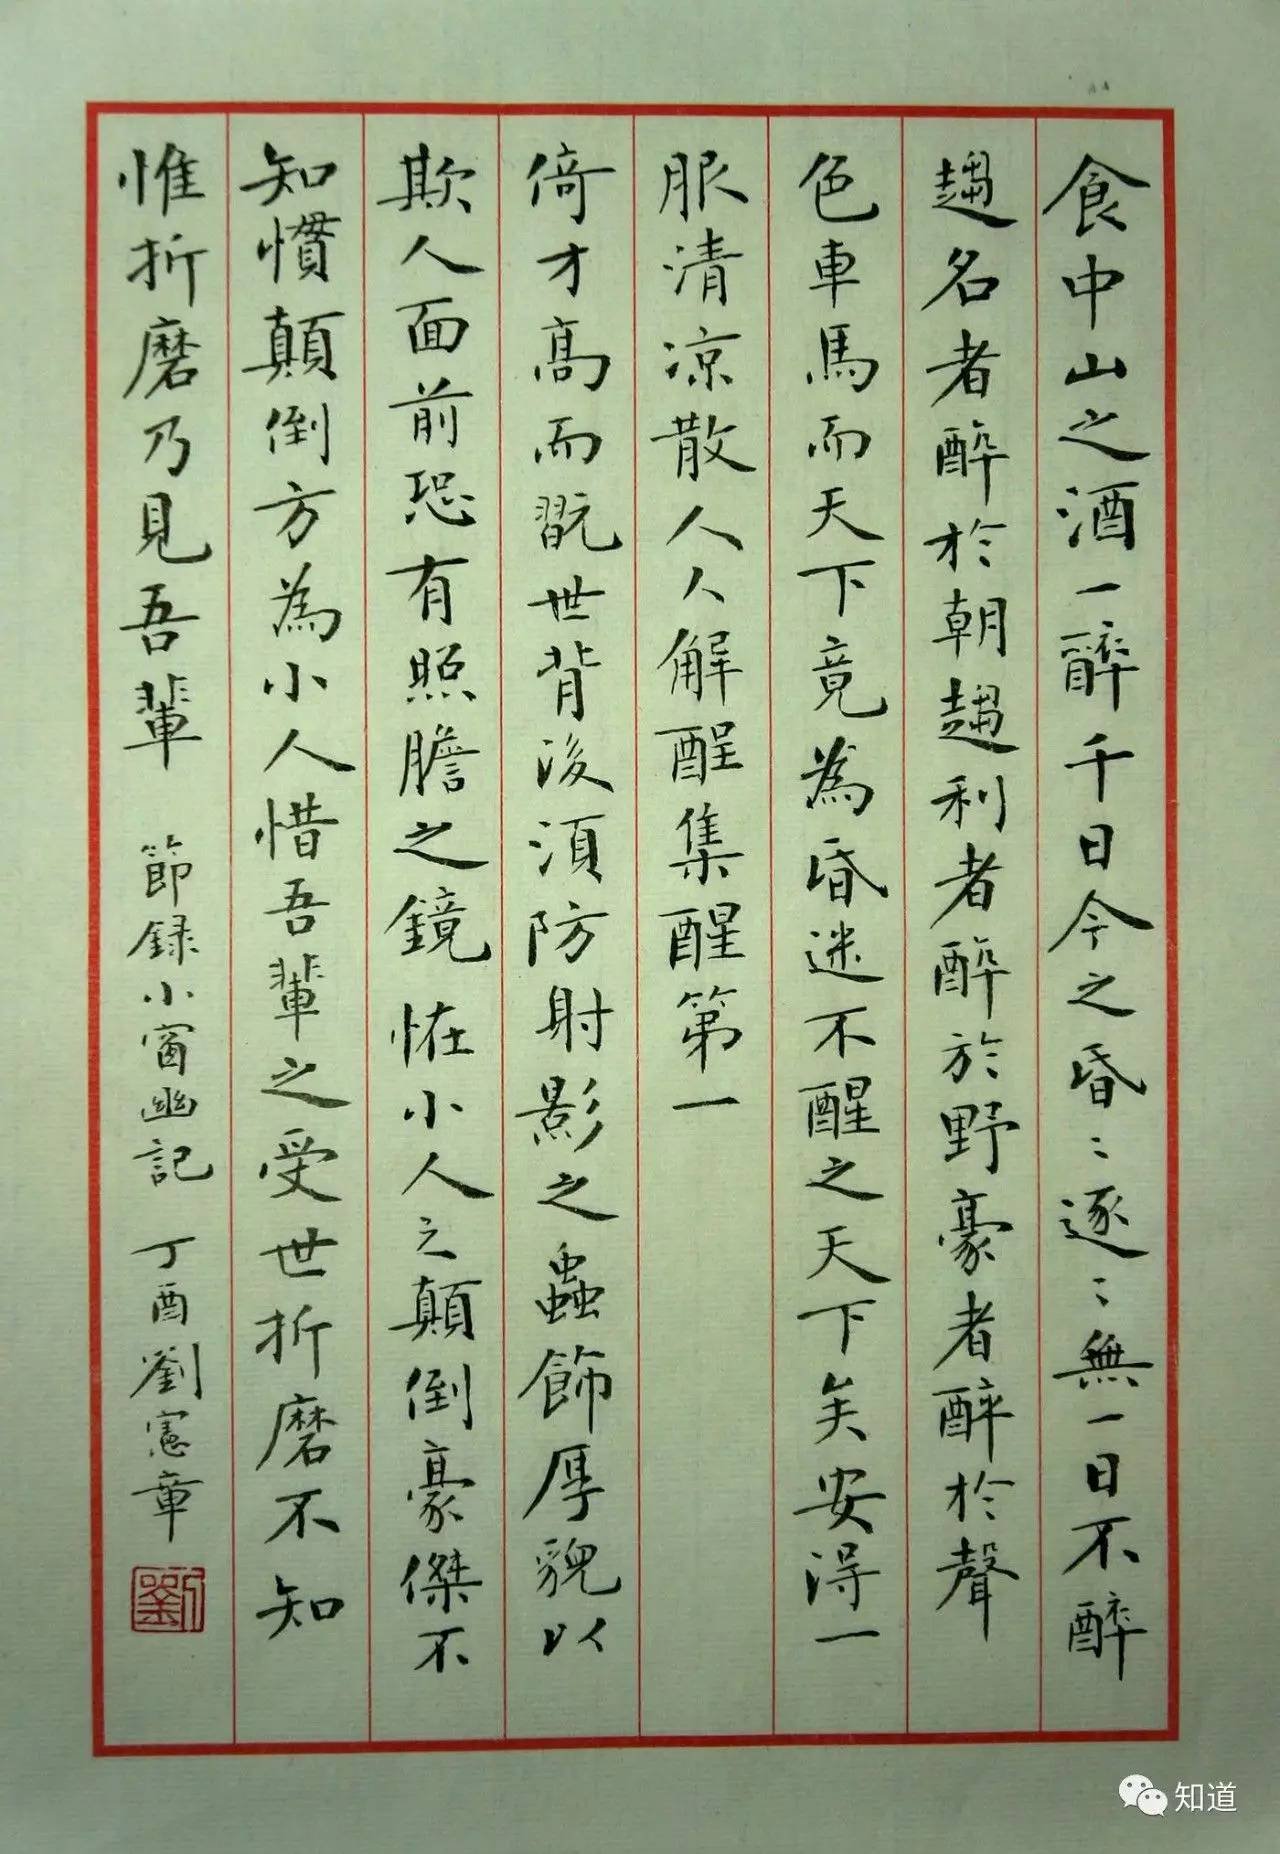 食中山之酒一醉千日今之昏〻逐〻無一日不醉
趨名者醉於朝趨利者醉於野豪者醉於聲
色車馬而天下竟為昏迷不醒之天下矣安得一
服清凉散人人解酲集醒第一
倚才高而翫世背後須防射影之蟲飾厚貌以
欺人面前恐有照膽之鏡恠小人之顛倒豪傑不
知慣顛倒方為小人惜吾輩之受世折磨不知
惟折磨乃見吾輩
節録小窗幽記 丁酉劉憲章
劉
知道